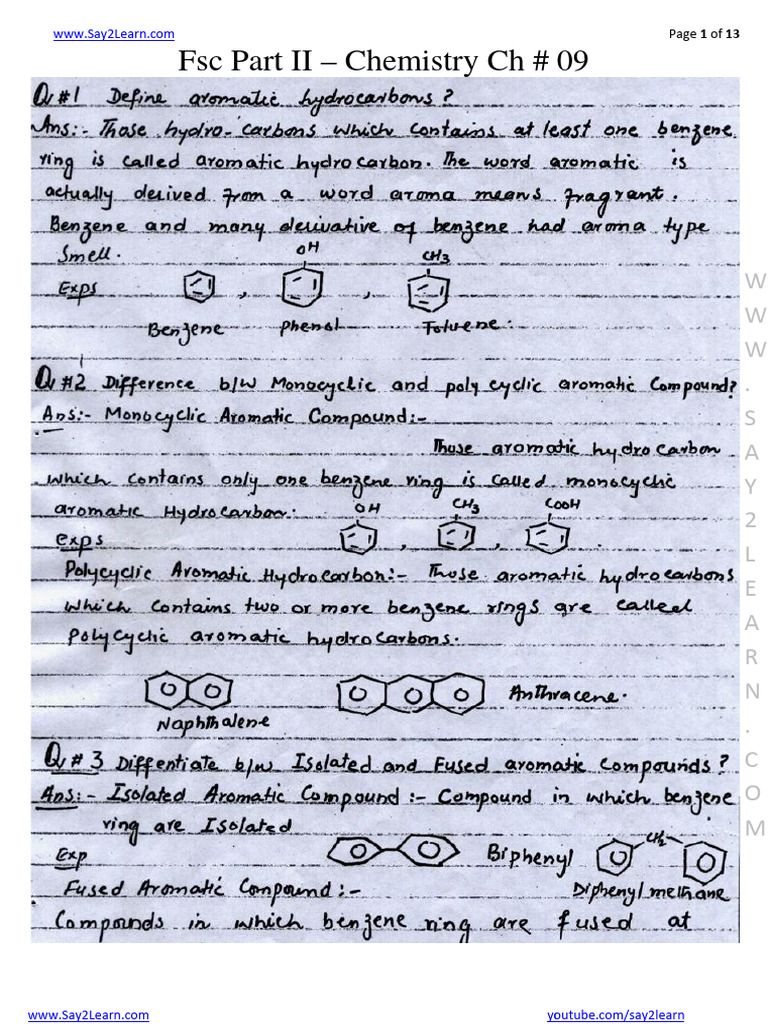 www.Say2Learn.com Page 1 of 13
Fsc Part II – Chemistry Ch # 09
Q#1 Define aromatic hydrocarbons?
Ans:- Those hydro-carbons which contains at least one benzene
ring is called aromatic hydrocarbon. The word aromatic is
actually derived from a word aroma means fragrant.
Benzene and many derivative of benzene had aroma type
Smell.
OH CH3
Exps , ,
Benzene Phenol Toluene.
Q#2 Difference b/w Monocyclic and poly cyclic aromatic Compound?
Ans:- Monocyclic Aromatic Compound:-
Those aromatic hydrocarbon
which contains only one benzene ring is called monocyclic
aromatic Hydrocarbon.
OH CH3 COOH
exps , , .
Polycyclic Aromatic Hydrocarbon:- Those aromatic hydrocarbons
which contains two or more benzene rings are called
Polycyclic aromatic hydrocarbons.
Anthracene.
Naphthalene
Q# 3 Diffentiate b/w Isolated and Fused aromatic compounds?
Ans:- Isolated Aromatic Compound:- Compound in which benzene
ring are Isolated
CH2
Exp Biphenyl
Fused Aromatic Compound:- Diphenyl methane
Compounds in which benzene ring are fused at
WWW.SAY2LEARN.COM
www.Say2Learn.com youtube.com/say2learn